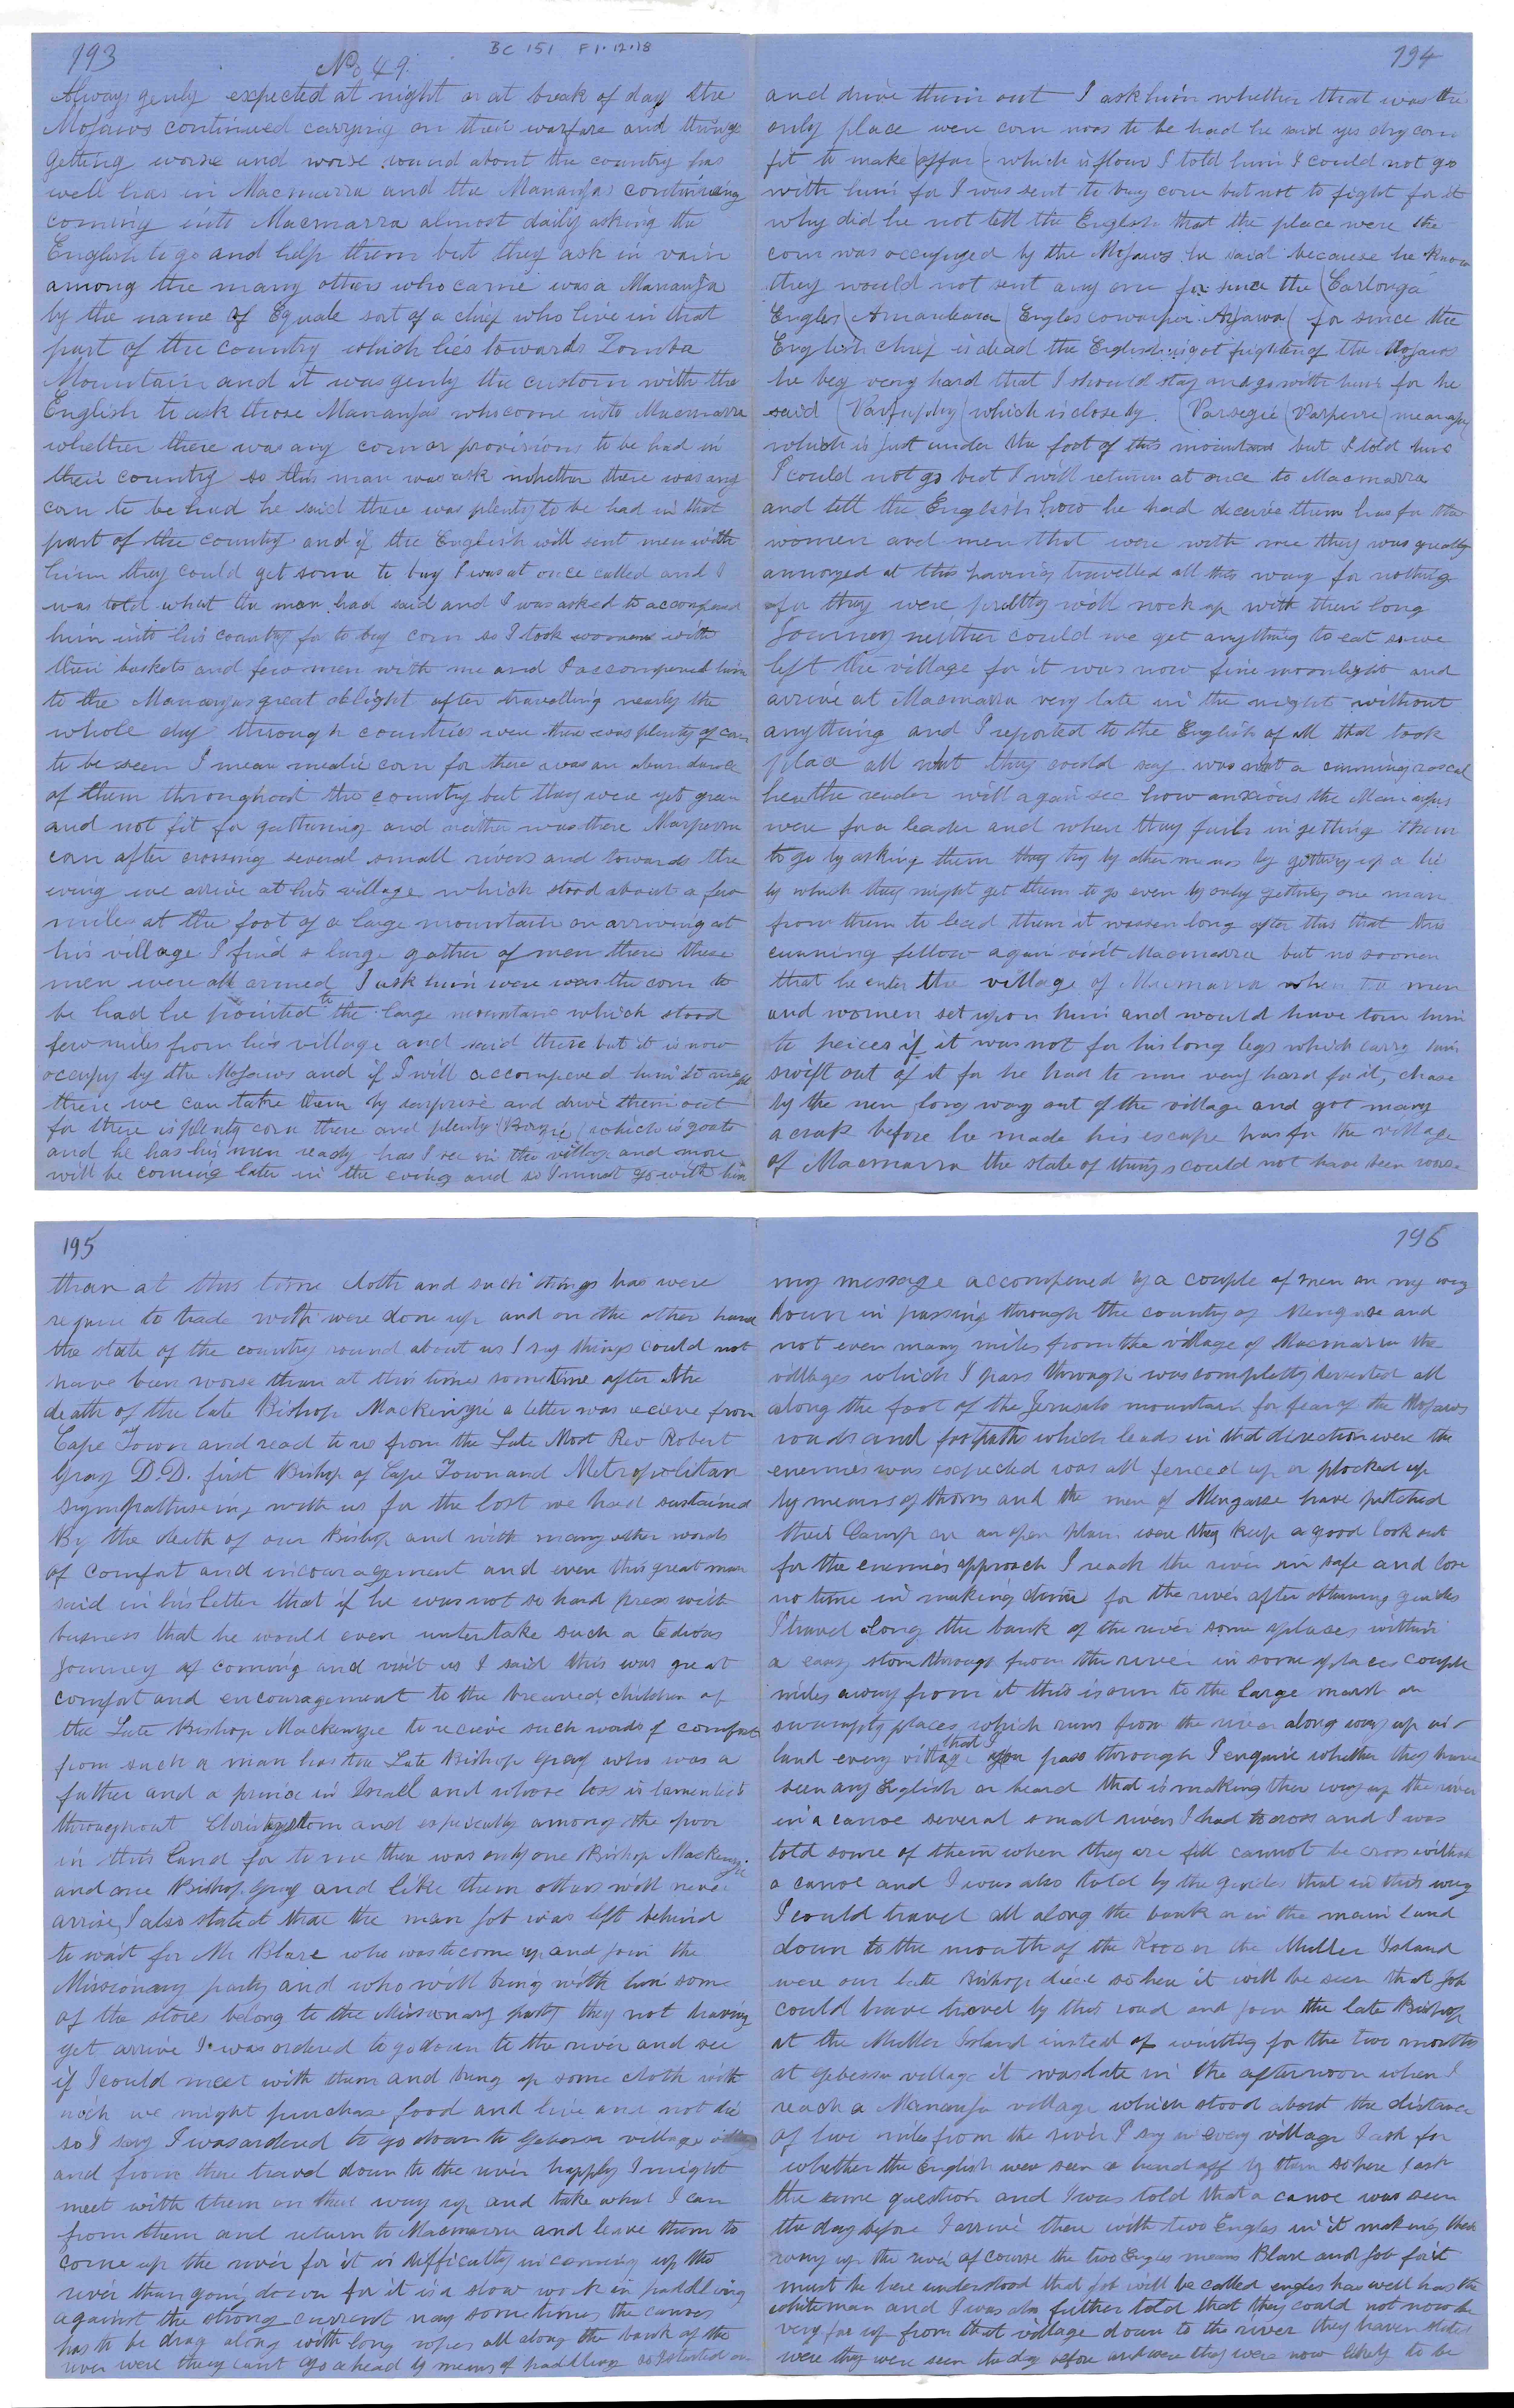 193
No 49.
BC 151 F1.12.18
Always genly expected at night or at break of day the
Mojawos continued carrying on their warfare and things
getting worse and worse round about the country has
well has in Macmarra and the Mananjas continueing
coming into Macmarra almost daily asking the
English to go and help them but they ask in vain
among the many others who came was a Mananja
by the name of Equale sort of a chief who live in that
part of the country which lies towards Zomba
Mountain and it was genly the custom with the
English to ask those Mananjas who come into Macmarra
whether there was any corn or provisions to be had in
their country so this man was ask whether there was any
corn to be had he said there was plenty to be had in that
part of the country and if the English will sent men with
him they could get some to buy I was at once called and I
was told what the man had said and I was asked to accompened
him into his country for to buy corn so I took women with
their baskets and few men with me and I accompened him
to the Mananjas great delight after travelling nearly the
whole day through countries were there was plenty of corn
to be seen I mean mealie corn for there was an abundance
of them throughout the country but they were yet green
and not fit for gathering and neither was there Marperra
corn after crossing several small rivers and towards the
eving we arrive at his village which stood about a few
miles at the foot of a large mountain on arriving at
his village I find a large gather of men there these
men were all armed I ask him were was the corn to
be had he pointed to the large mountain which stood
few miles from his village and said there but it is now
occupy by the Mojawos and if I will accompened him to night
there we can take them by surprise and drive them out
for there is plenty corn there and plenty (Boozie) which is goats
and he has his men ready has I see in the village and more
will be coming later in the eving and so I must go with him
194
and drive them out I ask him whether that was the
only place were corn was to be had he said yes dry corn
fit to make (offar) which is flour I told him I could not go
with him for I was sent to buy corn but not to fight for it
why did he not tell the English that the place were the
corn was occupyed by the Mojawos he said because he know
they would not sent any one for since the (Carlonga
Engles (Amankara (Engles cowarper Arjawa( for since the
English chief is dead the English is got frighten of the Mojawos
he beg very hard that I should stay and go with him for he
said (Parfuphy (which is close by. (Parsegie (Parperre( meaning
which is just under the foot of this mountain but I told him
I could not go but I will return at once to Macmarra
and tell the English how he had deceive them has for the
women and men that were with me they was greatly
annoyed at this having travelled all this way for nothing
for they were pretty well nock up with their long
Journey neither could we get anything to eat so we
left the village for it was now fine moonlight and
arrive at Macmarra very late in the night without
anything and I reported to the English of all that took
place all wat they could say was wat a cunning rascal
here the reader will again see how anxious the Mananjas
were for a leader and when they fails in getting them
to go by asking them they try by other means by getting up a lie
by which they might get them to go even by only getting one man
from them to lead them it wassen long after this that this
cunning fellow again visit Macmarra but no sooner
that he enter the village of Macmarra when the men
and women set upon him and would have torn him
to peices if it was not for his long legs which carry him
swift out of it for he had to run very hard for it, chase
by the men long way out of the village and got many
a crak before he made his escape has for the village
of Macmarra the state of things could not have been worse
195
than at this time cloth and such things has were
require to trade with were done up and on the other hand
the state of the country round about us I say things could not
have been worse than at this time sometime after the
death of the late Bishop Mackenzie a letter was recieve from
Cape Town and read to us from the Late Most Rev Robert
Gray D.D. first Bishop of Cape Town and Metropolitan
sympathiseing with us for the lost we had sustained
By the death of our Bishop and with many other words
of comfort and incouragement and even this great man
said in his letter that if he was not so hard press with
busness that he would even untertake such a tedious
Journey of coming and visit us I said this was great
comfort and encouragement to the breaved children of
the Late Bishop Mackenzie to recieve such words of comfort
from such a man has the Late Bishop Gray who was a
father and a prince in Israel and whose loss is lamented
throughout and especally among the poor
in this land for to me there was only one Bishop Mackenzie
and one Bishop Gray and like them others will never
arrise, I also stated that the man Job was left behind
to wait for Mr Blare who was to come up and join the
Missionary party and who will bring with him some
of the stores belong to the Missionary party they not having
yet arrive I was ordered to go down to the river and see
if I could meet with them and bring up some cloth with
wich we might purchase food and live and not die
so I say I was ordered to go down to Gebessa village
and from there travel down to the river happly I might
meet with them on their way up and take what I can
from them and return to Macmarra and leave them to
come up the river for it is difficulty in coming up the
river than going down for it is a slow work in paddling
against the strong current nay sometimes the canoes
has to be drag along with long ropes all along the bank of the
river were they cant go ahead by means of paddling so I started on
196
my message accompened by a couple of men on my way
down in passing through the country of Mengase and
not even many miles from the village of Macmarra the
villages which I pass through was completty deserted all
along the foot of the Jerusalo mountain for fear of the Mojawos
roads and footpaths which leads in that direction were the
enemies was expected was all fenced up or plocked up
by means of thorns and the men of Mengase have pitched
their Camp on an open plain were they keep a good look out
for the enemies approach I reach the river in safe and lose
no time in making down for the river after obtaining guides
I travel along the bank of the river some places within
a easy stone through from the river in some places couple
miles away from it this is own to the large marsh or
swampty places which runs from the river along ways up in-
land every village that I pass through I enquire whether they have
seen any English or heard that is making their way up the river
in a canoe several small rivers I had to cross and I was
told some of them when they are full cannot be cross without
a canoe and I was also told by the guides that in this way
I could travel all along the bank or in the main land
down to the mouth of the Rooo or the Muller Island
were our late Bishop died so here it will be seen that Job
could have travel by this road and join the late Bishop
at the Muller Island insted of waiting for the two months
at Gebessa village it was late in the afternoon when I
reach a Mananja village which stood about the distance
of two miles from the river I say in every village I ask for
whether the English were seen or heard off by them so here I ask
the same question and I was told that a canoe was seen
the day before I arrive there with two Engles in it making their
way up the river of course the two Engles means Blare and Job for it
must be here understood that Job will be called engles has well has the
white man and I was also futher told that they could not now be
very far up from that village down to the river they haven
were they were seen the day before and were they were now likely to be